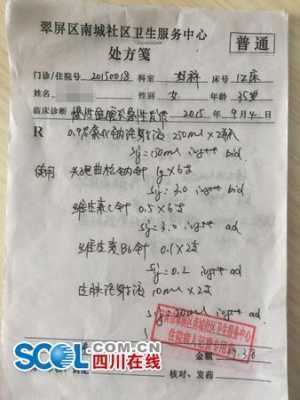 翠屏区南城社区卫生服务中心
处方笺
普通
门诊/住院号 20150018 科室 妇科 床号 12床
姓名 性别 女 年龄 35岁
临床诊断 慢性盆腔炎急性发作 2015 年 9 月 4 日
R 0.9%氯化钠注射液 250ml×2瓶
Sig=150ml ivgtt bid
头孢曲松钠针 1g×6支
Sig=3.0 ivgtt bid
维生素C针 0.5×6支
Sig=3.0 ivgtt qd
维生素B6针 0.1×2支
Sig=0.2 ivgtt qd
注射液 10ml×2支
Sig=20ml ivgtt qd
金额
核对、发药
SCOL.COM.CN 四川在线